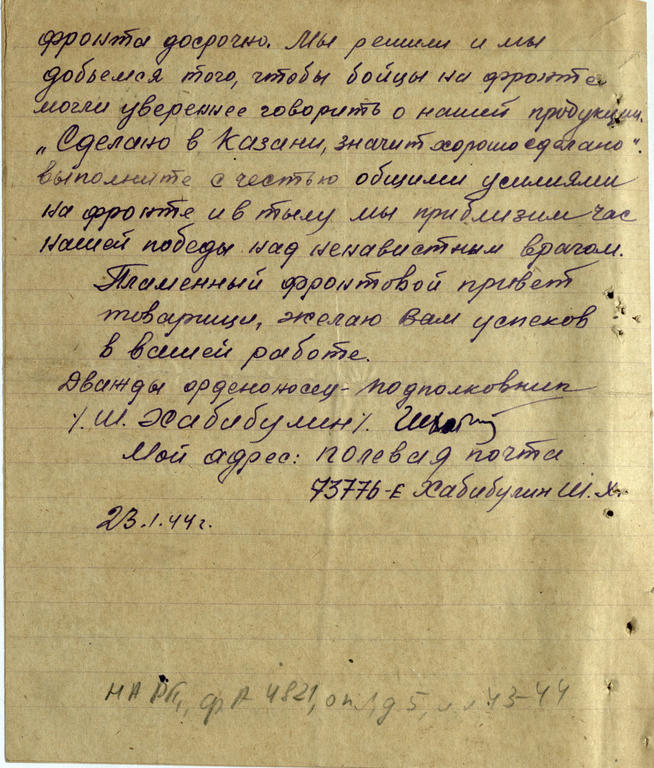 фронта досрочно. Мы решили и мы
добьемся того, чтобы бойцы на фронте
могли увереннее говорить о нашей продукции.
„Сделано в Казани, значит хорошо сделано".
выполните с честью общими усилиями
на фронте и в тылу мы приблизим час
нашей победы над ненавистным врагом.
Пламенный фронтовой привет
товарищи, желаю Вам успехов
в вашей работе.
Дважды орденоносец - подполковник
/.Ш. Хабибулин/.
Мой адрес: полевая почта
73776-Е Хабибулин Ш.Х.
23.1.44 г.
НА РТ, ф Р 4821, оп 1, д 5, л л 43-44